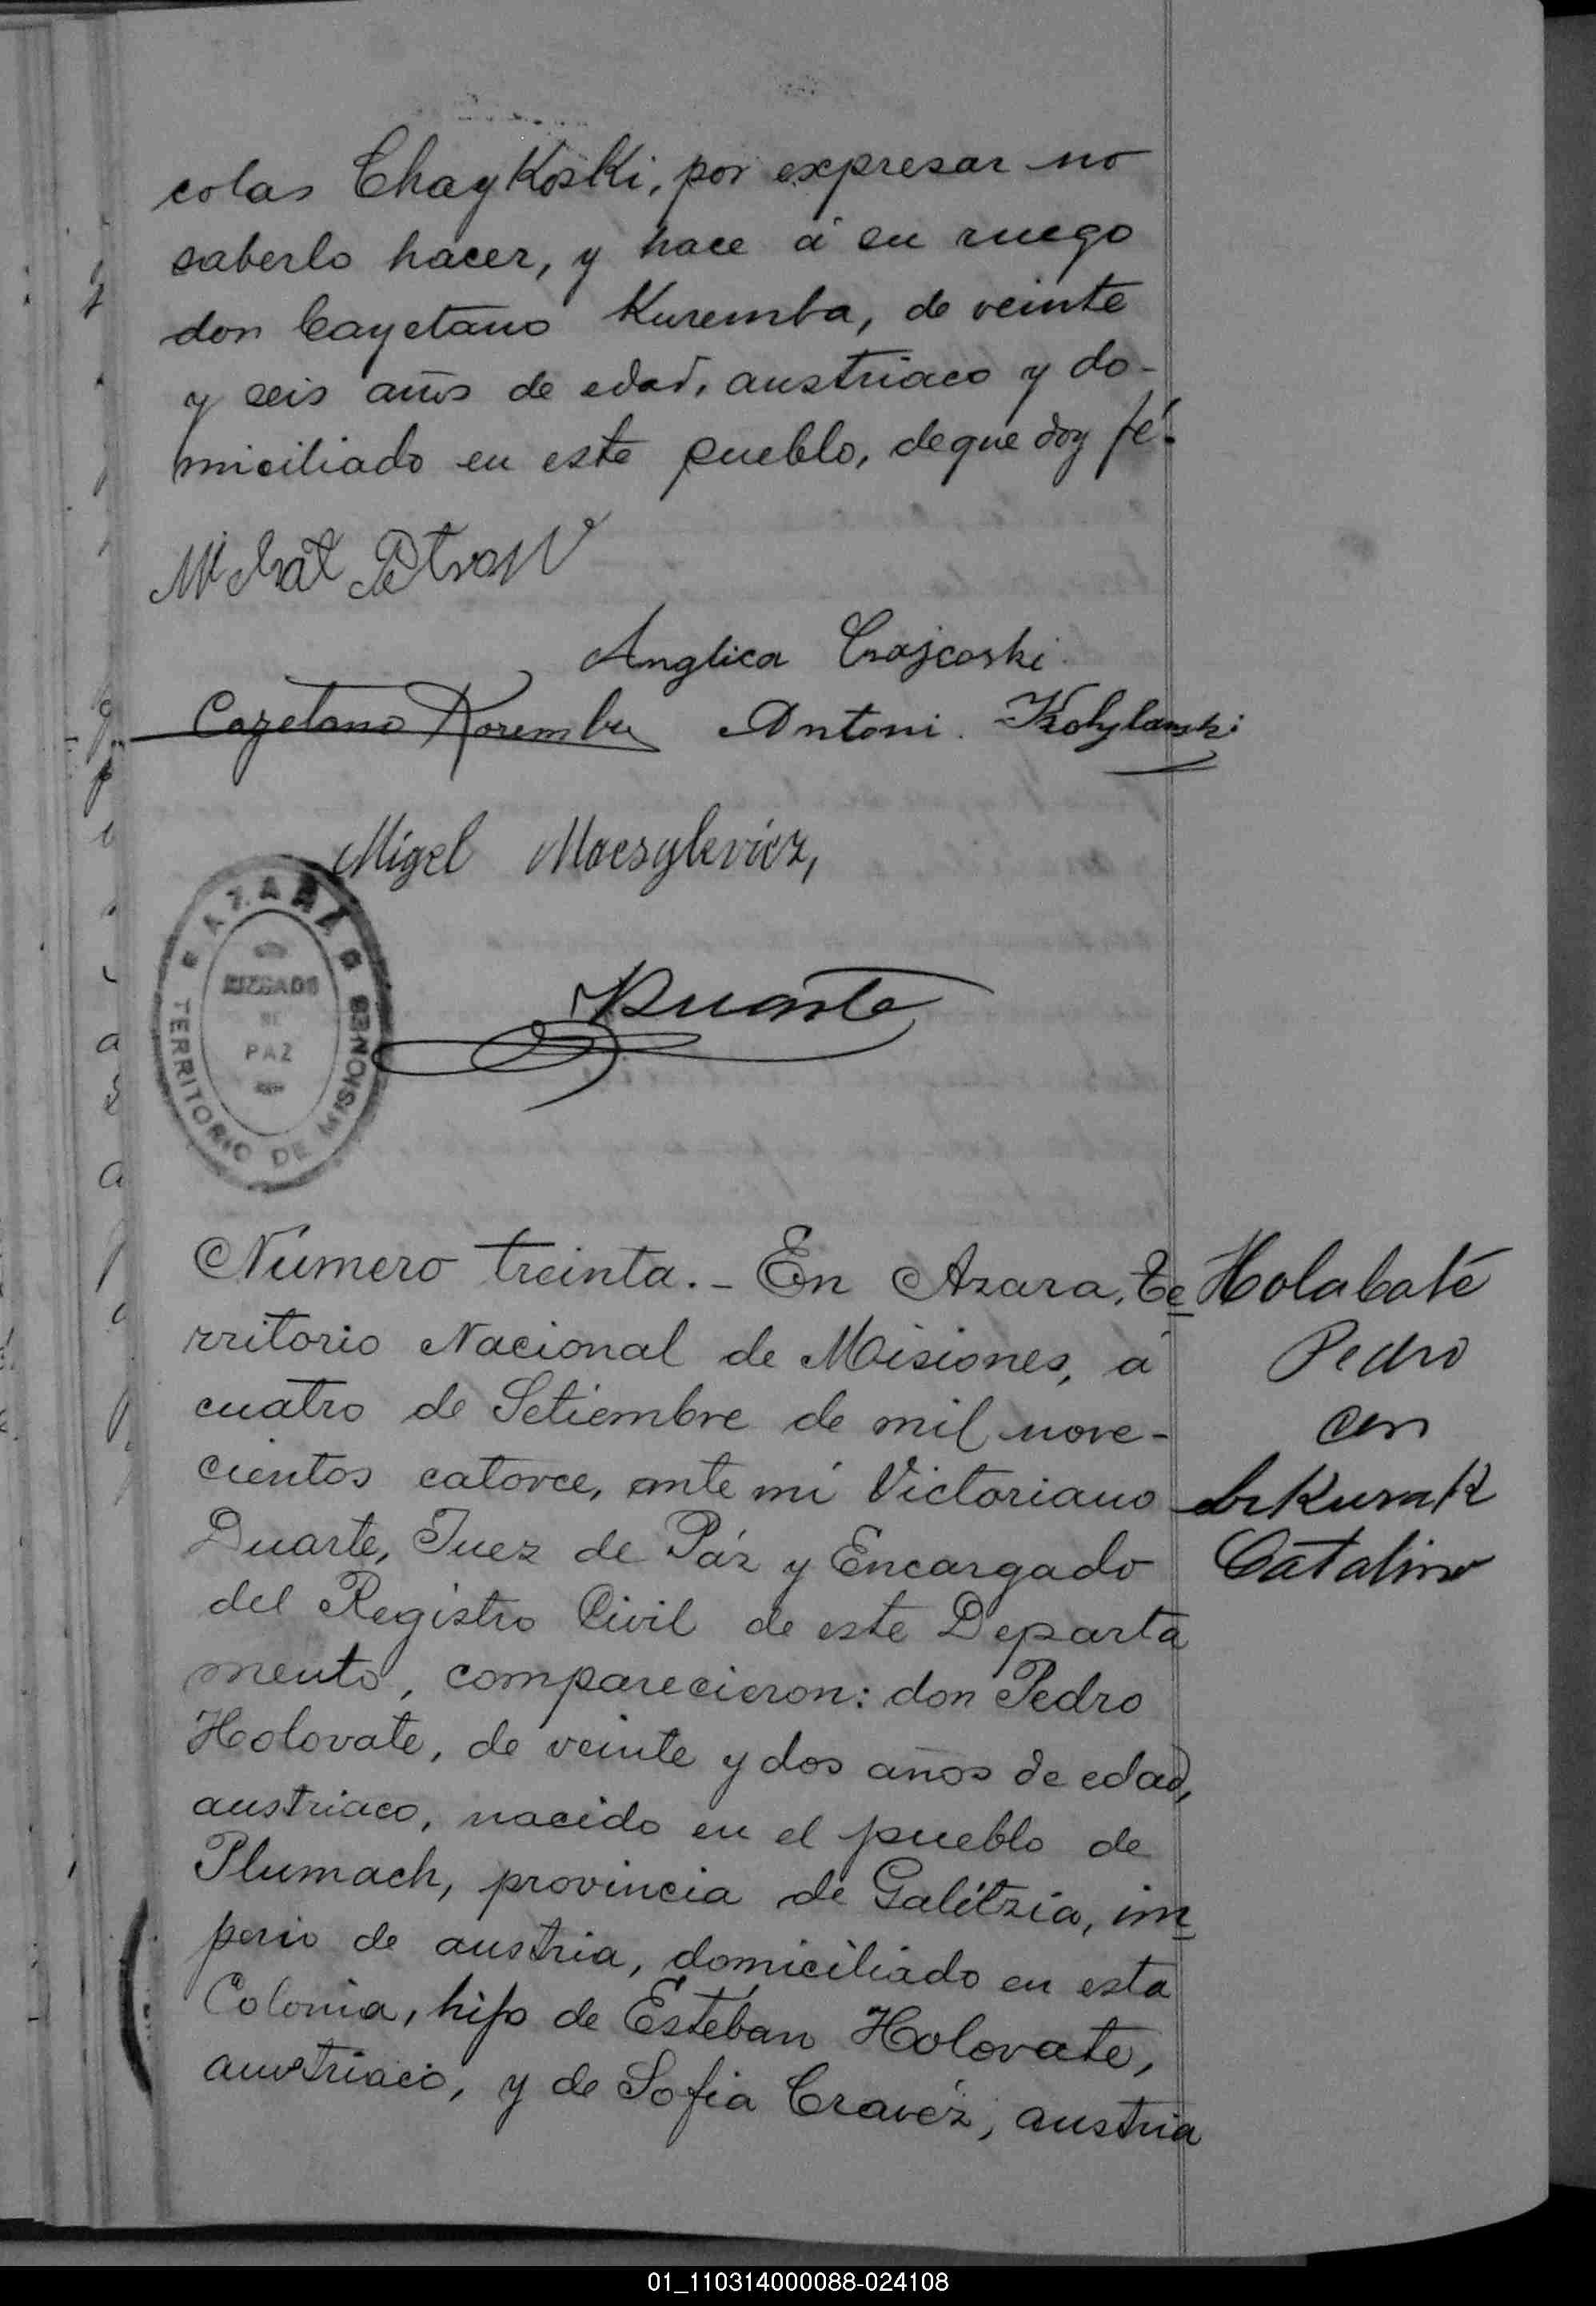 colas ChayKosKi, por expresar no
saberlo hacer, y hace á su ruego
don Cayetano Kuremba, de veinte
y seis años de edad, austriaco y do-
miciliado en este pueblo, de que doy fé.
Anglica Crajcoski
Cayetano Korembu Antoni
Migel
Duarte
AZARA
JUZGADO
DE
PAZ
TERRITORIO DE MISIONES
Número treinta.- En Azara, Te
rritorio Nacional de Misiones, á
cuatro de Setiembre de mil nove-
cientos catorce, ante mí Victoriano
Duarte, Juez de Páz y Encargado
del Registro Civil de este Departa
mento, comparecieron: don Pedro
Holovate, de veinte y dos años de edad,
austriaco, nacido en el pueblo de
Plumach, provincia de Galítzia, im
perio de austria, domiciliado en esta
Colonia, hijo de Estéban Holovate,
austriaco, y de Sofia Cravéz, austria
Holabaté
Pedro
con
Catalina
01_110314000088-024108